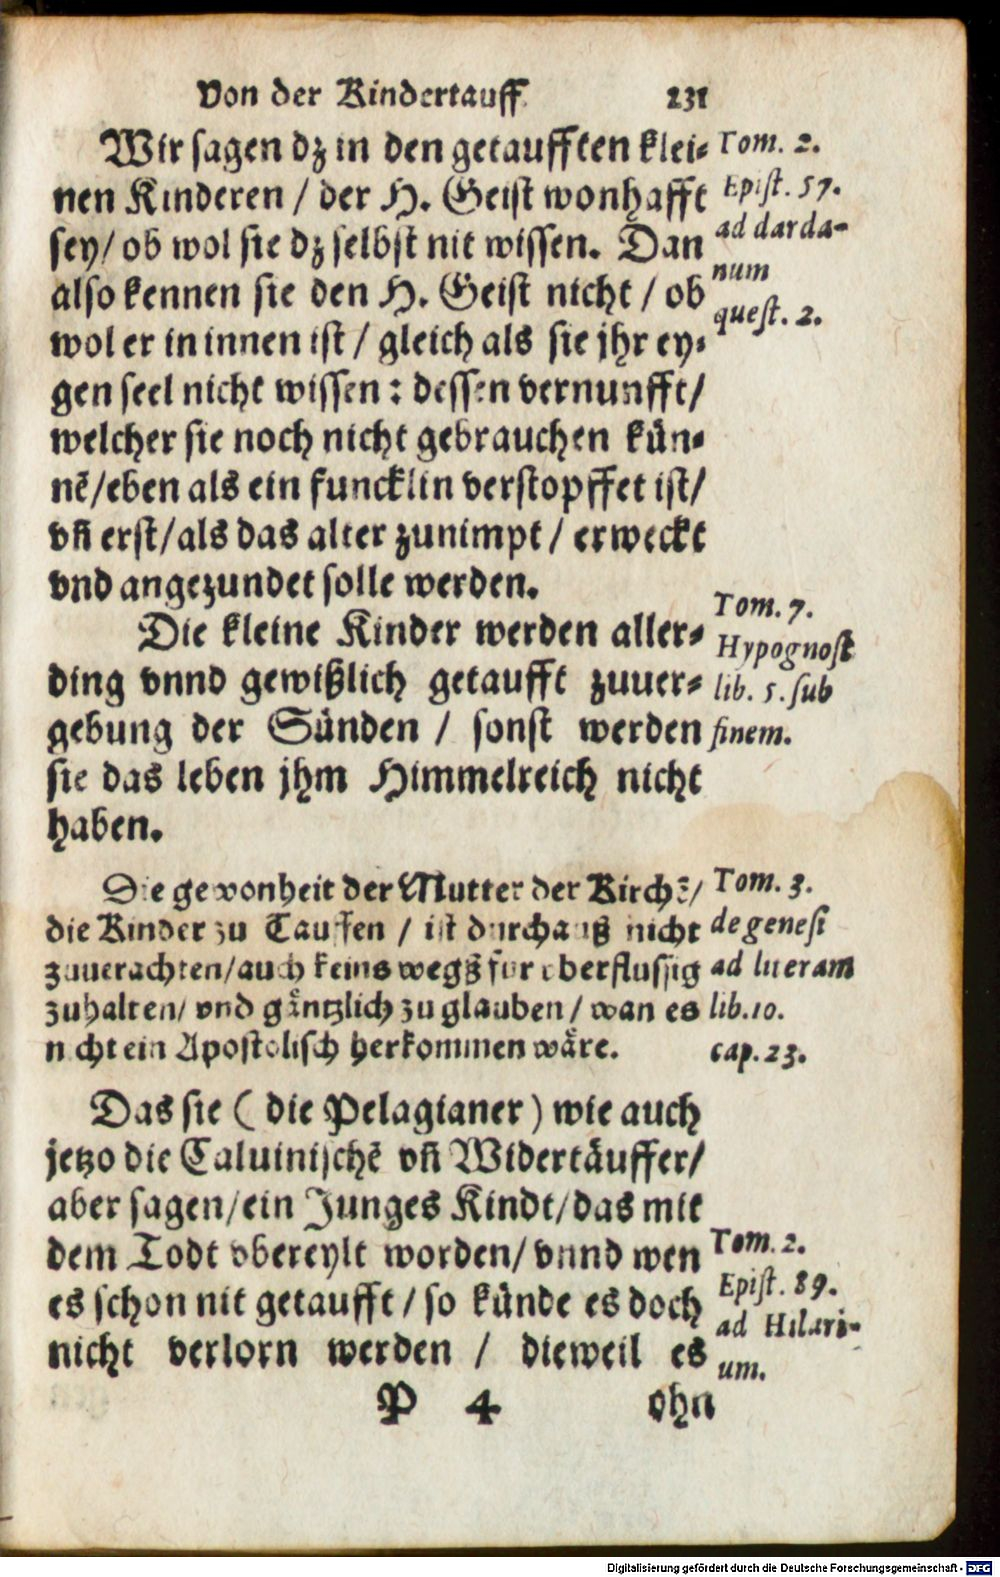 Von der Kindertauff 231
Wir sagen dz in den getaufften klei-
nen Kinderen / der H. Geist wonhafft
sey / ob wol sie dz selbst nit wissen. Dan
also kennen sie den H. Geist nicht / ob
wol er in innen ist / gleich als sie jhr ey-
gen seel nicht wissen : dessen vernunfft /
welcher sie noch nicht gebrauchen kün-
nē / eben als ein funcklin verstopffet ist /
vñ erst / als das alter zunimpt / erweckt
vnd angezundet solle werden.
Tom. 2.
Epist. 57.
ad darda-
num
quest. 2.
Die kleine Kinder werden aller-
ding vnnd gewißlich getaufft zuuer-
gebung der Sünden / sonst werden
sie das leben jhm Himmelreich nicht
haben.
Tom. 7.
Hypognost
lib. 5. sub
finem.
Die gewonheit der Mutter der Kirchē /
die Kinder zu Tauffen / ist durchauß nicht
zuuerachten / auch keins wegß für vberflussig
zuhalten / vnd gäntzlich zu glauben / wan es
nicht ein Apostolisch herkommen wäre.
Tom. 3.
de genesi
ad literam
lib. 10.
cap. 23.
Das sie ( die Pelagianer ) wie auch
jetzo die Caluinischē vñ Widertäuffer /
aber sagen / ein Junges Kindt / das mit
dem Todt vbereylt worden / vnnd wen
es schon nit getaufft / so künde es doch
nicht verlorn werden / dieweil es
Tom. 2.
Epist. 89.
ad Hilari-
um.
P 4 ohn
Digitalisierung gefördert durch die Deutsche Forschungsgemeinschaft - DFG